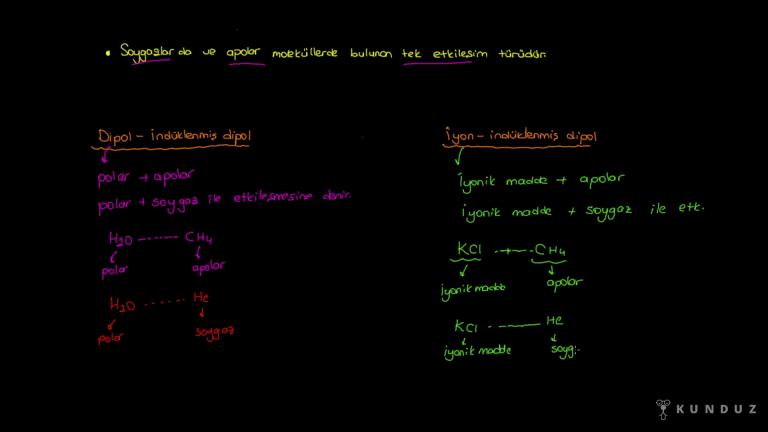 • Soygazlarda ve apolar moleküllerde bulunan tek etkileşim türüdür.
Dipol - indüklenmiş dipol
polar + apolar
polar + soygaz ile etkileşmesine denir.
H2O ------- CH4
polar apolar
H2O ------ He
polar soygaz
İyon - indüklenmiş dipol
İyonik madde + apolar
İyonik madde + soygaz ile etk.
KCl ------ CH4
iyonik madde apolar
KCl ------ He
iyonik madde soyg
KUNDUZ